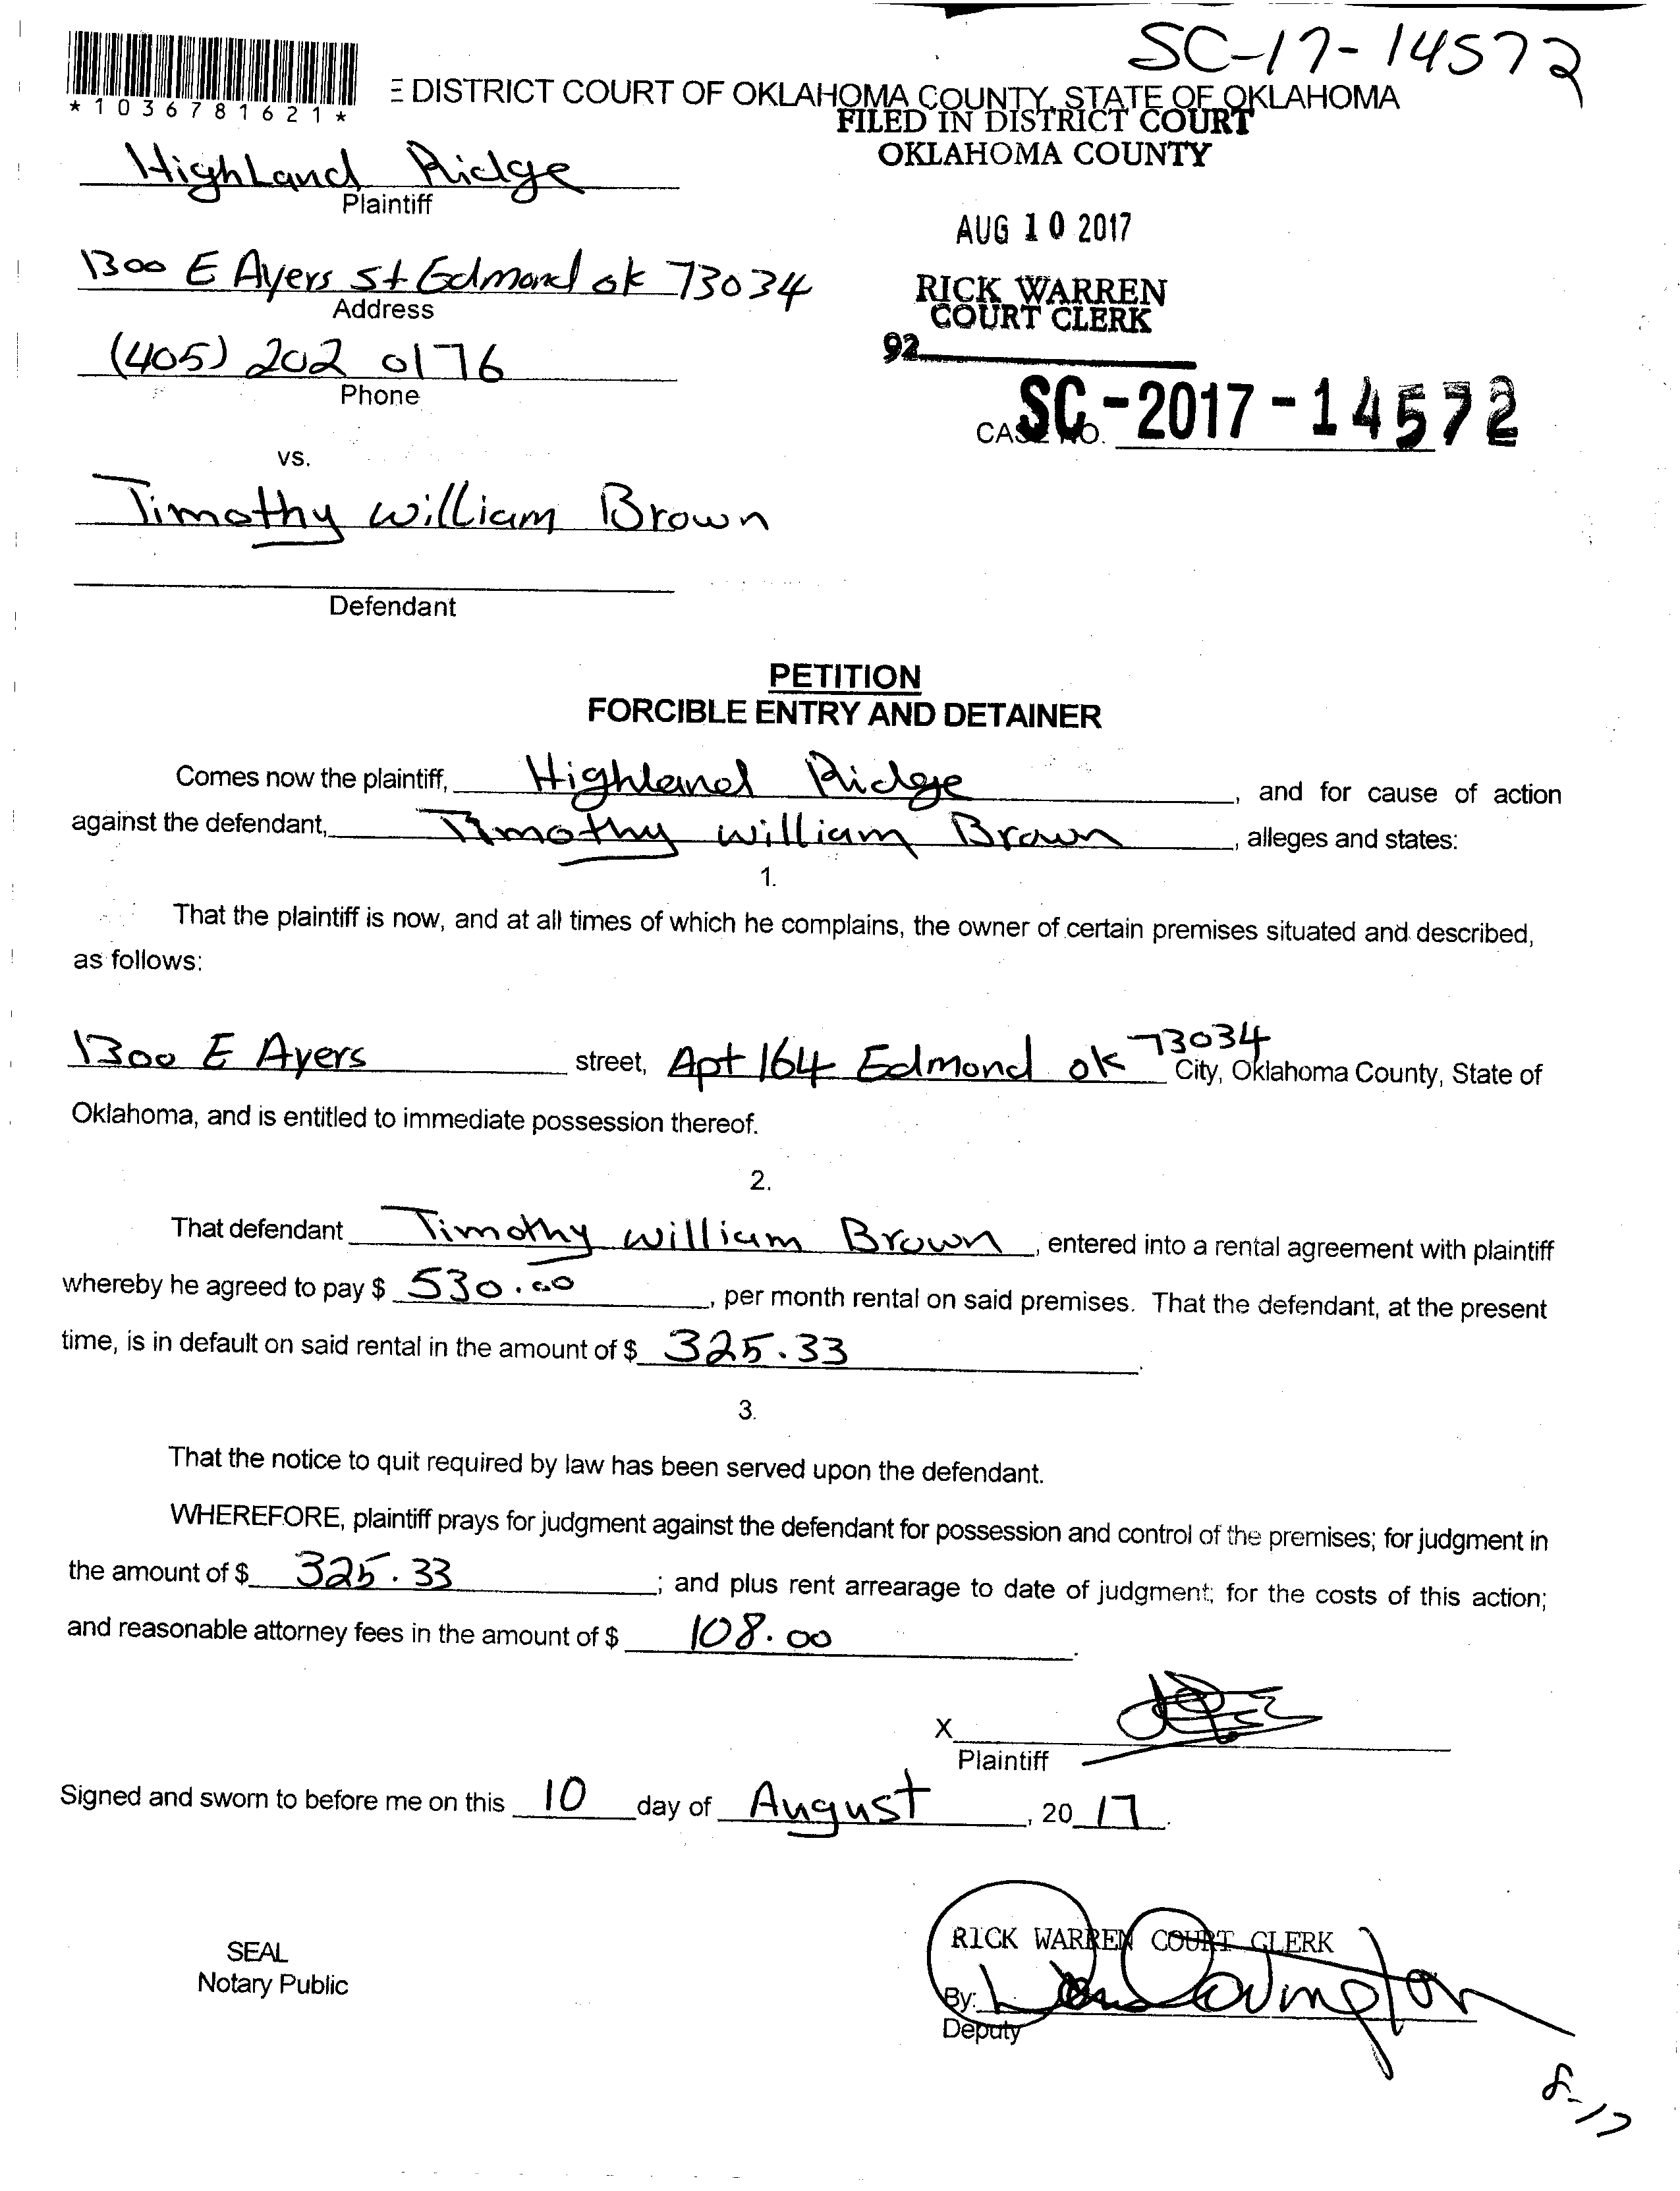 SC-17-14572
*1036781621*
E DISTRICT COURT OF OKLAHOMA COUNTY, STATE OF OKLAHOMA
FILED IN DISTRICT COURT
OKLAHOMA COUNTY
Highland Ridge
Plaintiff
AUG 10 2017
1300 E Ayers St Edmond ok 73034
Address
RICK WARREN
COURT CLERK
(405) 202 0176
92
Phone
CASE NO. SC-2017-14572
vs.
Timothy william Brown
Defendant
PETITION
FORCIBLE ENTRY AND DETAINER
Comes now the plaintiff, Highland Ridge, and for cause of action
against the defendant, Timothy william Brown, alleges and states:
1.
That the plaintiff is now, and at all times of which he complains, the owner of certain premises situated and described,
as follows:
1300 E Ayers street, Apt 164 Edmond ok 73034 City, Oklahoma County, State of
Oklahoma, and is entitled to immediate possession thereof.
2.
That defendant Timothy william Brown, entered into a rental agreement with plaintiff
whereby he agreed to pay $ 530.00, per month rental on said premises. That the defendant, at the present
time, is in default on said rental in the amount of $ 325.33.
3.
That the notice to quit required by law has been served upon the defendant.
WHEREFORE, plaintiff prays for judgment against the defendant for possession and control of the premises; for judgment in
the amount of $ 325.33; and plus rent arrearage to date of judgment; for the costs of this action;
and reasonable attorney fees in the amount of $ 108.00.
X
Plaintiff
Signed and sworn to before me on this 10 day of August, 2017.
RICK WARREN COURT CLERK
SEAL
Notary Public
By: Covington
Deputy
8-17